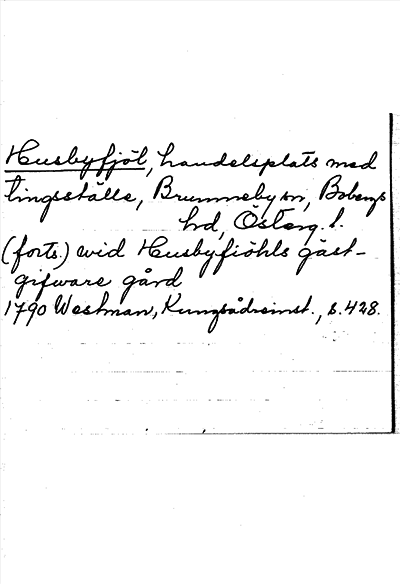 Husbyfjöl, handelsplats med
tingsställe, Brunneby sn, Bobergs
hd, Österg. l.
(forts.) wid Husbyfiöhls gäst-
gifware gård
1790 Westman, Kungsådreinst., s. 428.